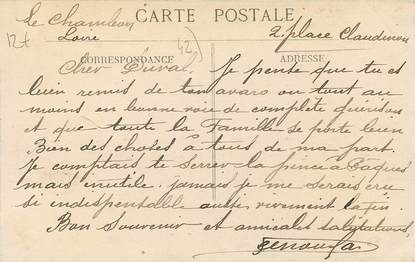 Le Chambon CARTE POSTALE
Loire 2. place Claudinon
12f 42
CORRESPONDANCE ADRESSE
Cher Duval. Je pense que tu es
bien remis de ton avaro ou tout au
moins en bonne voie de complète guérison
et que toute la Famille se porte bien
Bien des choses à tous de ma part.
Je comptais te serrer la pince à Pâques
mais inutile. jamais je me serais cru
si indispensable aussi vivement la fin
Bon Souvenir et amicales salutations